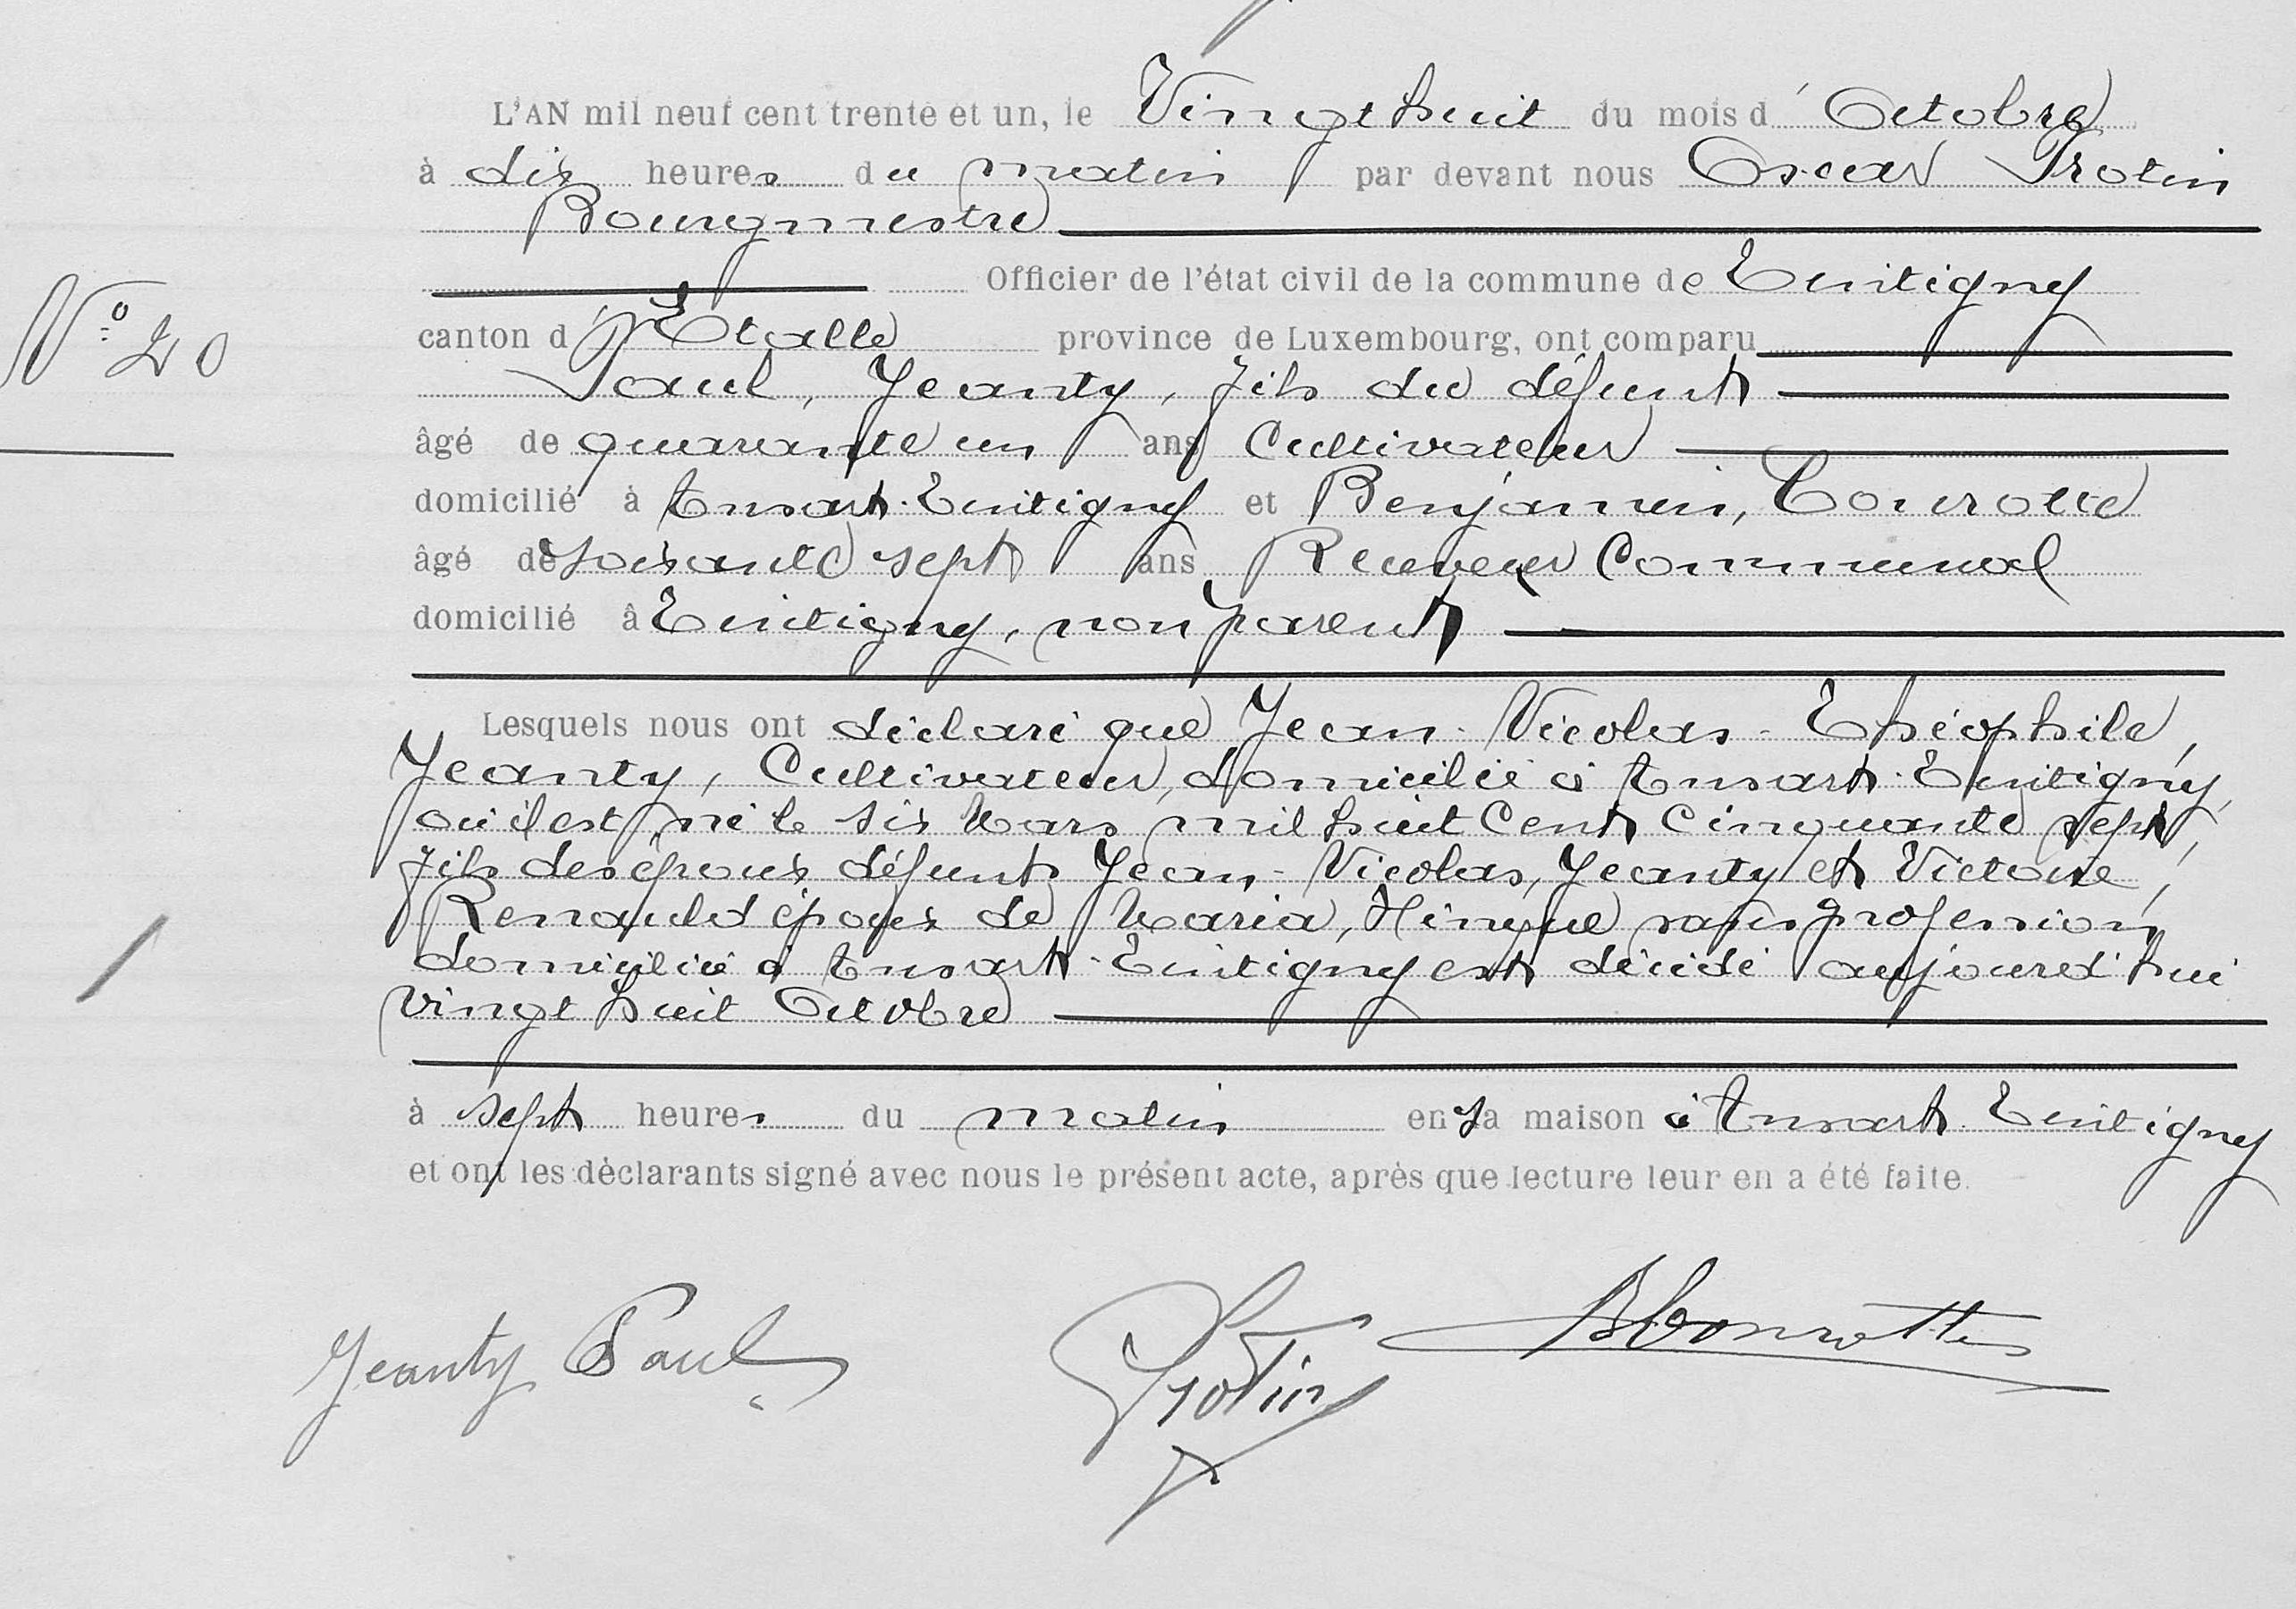 L'AN mil neuf cent trente et un, le Vingt huit du mois d' Octobre
à dix heures du matin par devant nous Oscar Protin
Bourgmestre
Officier de l'état civil de la commune de Tintigny
N° 20
canton d'Etalle province de Luxembourg, ont comparu
Paul, Jeanty, fils du défunt
âgé de quarante un ans Cultivateur
domicilié à Ansart-Tintigny et Benjamin,
âgé de soixante sept ans Receveur Communal
domicilié à Tintigny, non parent
Lesquels nous ont déclaré que Jean-Nicolas-Théophile,
Jeanty, Cultivateur, domicilié à Ansart-Tintigny,
où il est né le six Mars mil huit Cent Cinquante sept,
fils des époux défunts Jean-Nicolas, Jeanty et Victoire,
Renauld époux de Maria, sans profession
domiciliée à Ansart-Tintigny est décédé aujourd'hui
vingt huit Octobre
à sept heures du matin en sa maison à Ansart-Tintigny
et ont les déclarants signé avec nous le présent acte, après que lecture leur en a été faite.
Jeanty Paul Protin